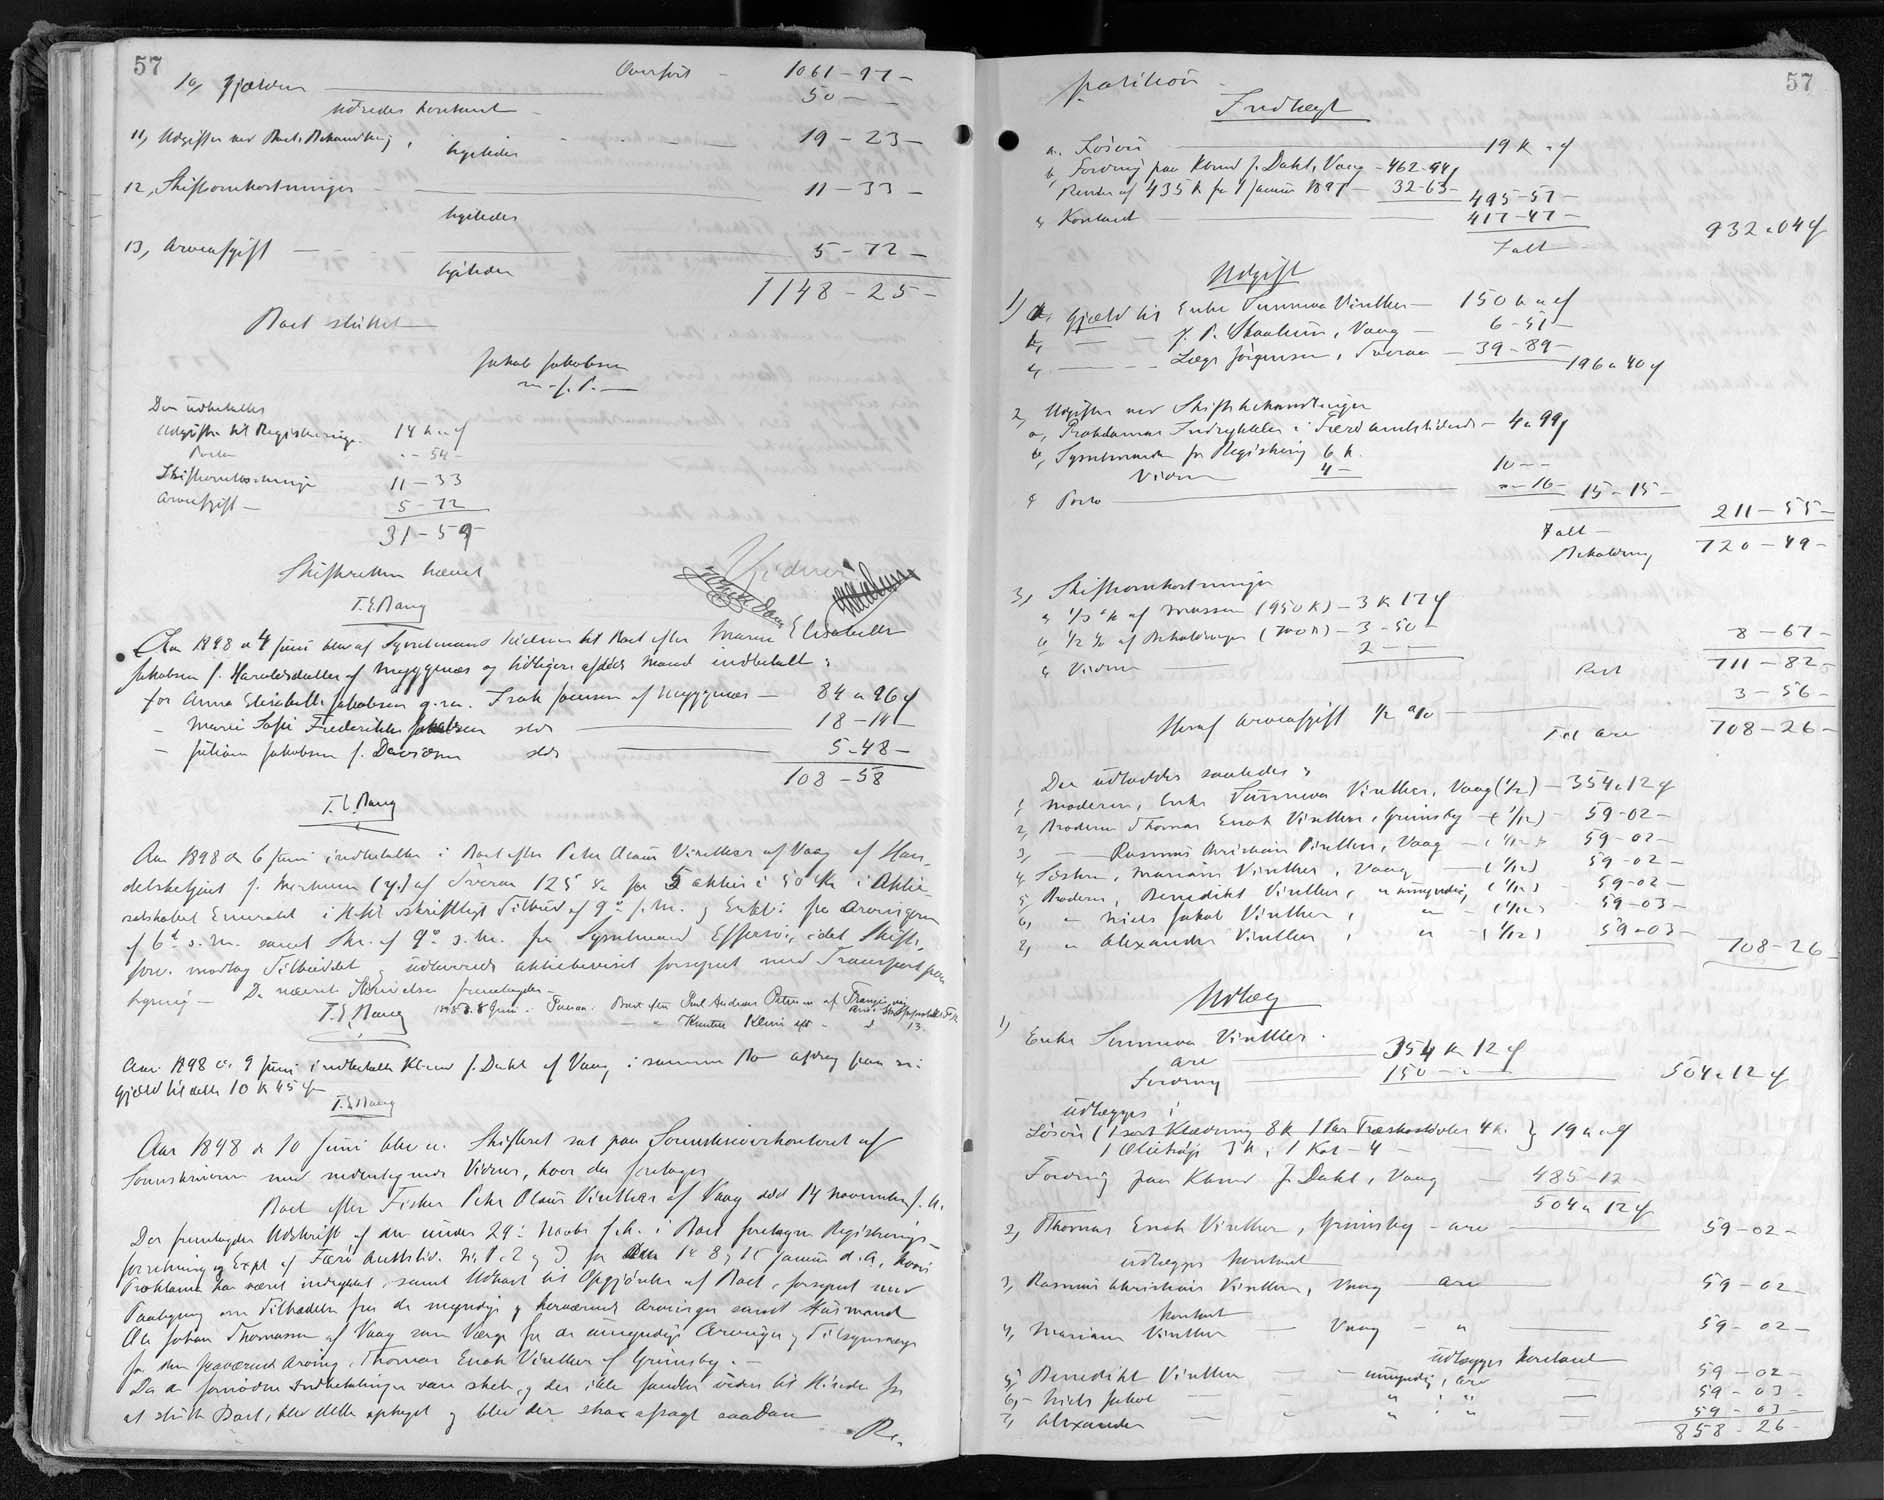 57
Overført - 1061-97-
10, Gjælden 50 - -
udredes kontant -
11, Udgifter ved Boets Behandling, 19-23-
ligeledes
12, Skifteomkostninger 11-33-
ligeledes
13, Arveafgift 5-72-
ligeledes
1148-25-
Boet sluttet
Jakob Jakobsen
m. f. P.
Der udbetaltes
Udgifter til Registrering 14 k " ø
Porto " - 54 -
Skifteomkostninger 11-33
Arveafgift - 5-72
31-59
Skifteretten hævet
T.E. Bang
Vidner
Aar 1898 d 4 Juni blev af Sysselmand til Boet efter Maren Elisabeth
Jakobsen f. Haraldsdatter af Myggenæs og tidligere afdøde Mand indbetalt:
for Anna Elisabeth Jakobsen g. m. Isak Joensen af Myggenæs - 84 " 96 ø
- Marie Sofie Frederikke Jakobsen slds 18-14
- Juliane Jakobsen f. Davidsen slds 5-48-
108-58
T.E. Bang
Aar 1898 d 6 Juni indbetaltes i Boet efter Peter Olaus Vinther af Vaag af Han-
delsbetjent J. Mortensen (y.) af Tveraa 125 Kr for 5 aktier à 50 Kr i Aktie-
selskabet Emerald i H. til skriftligt Tilbud af 9de f. M. og Erkl: fra Arvingerne
af 6te s. M. samt Skr. af 9de s. M. fra Sysselmand Effersøe, idet Skifte-
forv. modtog Tilbuddet og udleverede aktiebeviset forsynet med Transport paa-
tegning - De nævnte Skrivelser fremlagdes -
T.E. Bang
Aar 1898 d. 9 Juni indbetalte Kbmd J. Dahl af Vaag i samme Bo afdrag paa sin
gjæld til dette 10 K 45 ø
T.E. Bang
Aar 1898 d 10 Juni blev en Skifteret sat paa Sorenskriverkontoret af
Sorenskriveren med nedentegnede Vidner, hvor da foretoges
Boet efter Fisker Peter Olaus Vinther af Vaag død 14 November f. A.
Der fremlagdes Udskrift af den under 29: Novbr f. A. i Boet foretagne Registrerings-
forretning og Expl. af Færø Amtstid. Nr 1, 2 og 3 for den 1ste 8 og 15 Januar d. A, hvori
Proklama har været indrykket, samt Udkast til Opgjørelse af Boet, forsynet med
Paategning om Tiltrædelse fra de myndige og herværende Arvinger samt Husmand
Ole Johan Thomassen af Vaag som Værge for de umyndige Arvinger og Tilsynsværge
for den fraværende Arving, Thomas Enok Vinther af Grimsby. -
Da de fornødne Indbetalinger vare skete, og der ikke fandtes videre til Hinder for
at slutte Boet, blev dette optaget og blev der strax afsagt saadan
Re-
57
partition -
Indtægt
a. Løsøre 19 K " ø
b, Fordring paa Kbmd J. Dahl, Vaag - 462-94
Renter af 435 K fra 1 Januar 1897 - 32-63- 495-57-
c, Kontant 417-47-
Ialt 932 " 04 ø
Udgift
1) a, Gjæld til Enke Sunneva Vinther - 150 k " ø
b, - - J. P. Skaalum, Vaag - 6-51-
c, - - Læge Jørgensen, Tveraa - 39-89- 196 " 40 ø
2, Udgifter ved Skiftebehandlingen
a, Proklamas Indrykkelse i Færø amtstidende - 4 " 99
b, Sysselmanden for Registrering 6 k.
Vidner 4 - 10 - -
c, Porto " - 16 - 15-15-
Ialt - 211-55-
Beholdning 720-49-
3, Skifteomkostninger
a, 1/3 % af Massen (950 K) - 3 K 17 ø
b, 1/2 % af Beholdningen (700 K) - 3-50-
c, Vidner 2 - - 8-67-
Rest 711-82-
Heraf arveafgift 1/2 % - 3-56-
Til Arv 708-26-
Der udloddes saaledes:
1, Moderen, Enke Sunneva Vinther, Vaag (1/2) - 354 " 12 ø
2, Broderen Thomas Enok Vinther, Grimsby - (1/12) - 59-02-
3, - Rasmus Christian Vinther, Vaag - (1/12) 59-02-
4, Søsteren, Mariane Vinther, Vaag - (1/12) 59-02-
5, Broderen, Benedikt Vinther, " umyndig, (1/12) - 59-02-
6, " Niels Jakob Vinther, " - (1/12) 59-03-
7, " Alexander Vinther, " - (1/12) 59-03-
708-26
Udlæg
1) Enke Sunneva Vinther.
arv 354 K 12 ø
Fordring 150 - " 504 " 12 ø
udlægges:
Løsøre (1 sort Klædning 8 K 1 Par Træskostøvler 4 K.
1 Olietrøje 3 K, 1 Kot - 4 - } 19 " " ø
Fordring paa Kbmd J. Dahl, Vaag - 485-12-
504 " 12 ø
2, Thomas Enok Vinther, Grimsby - arv 59-02-
udlægges kontant
3, Rasmus Christian Vinther, Vaag arv 59-02
kontant
4, Mariane Vinther - Vaag - " 59-02-
udlægges kontant
5, Benedikt Vinther - umyndig, arv 59-02-
6, - Niels Jakob " " 59-03-
7, Alexander " " 59-03-
858-26-